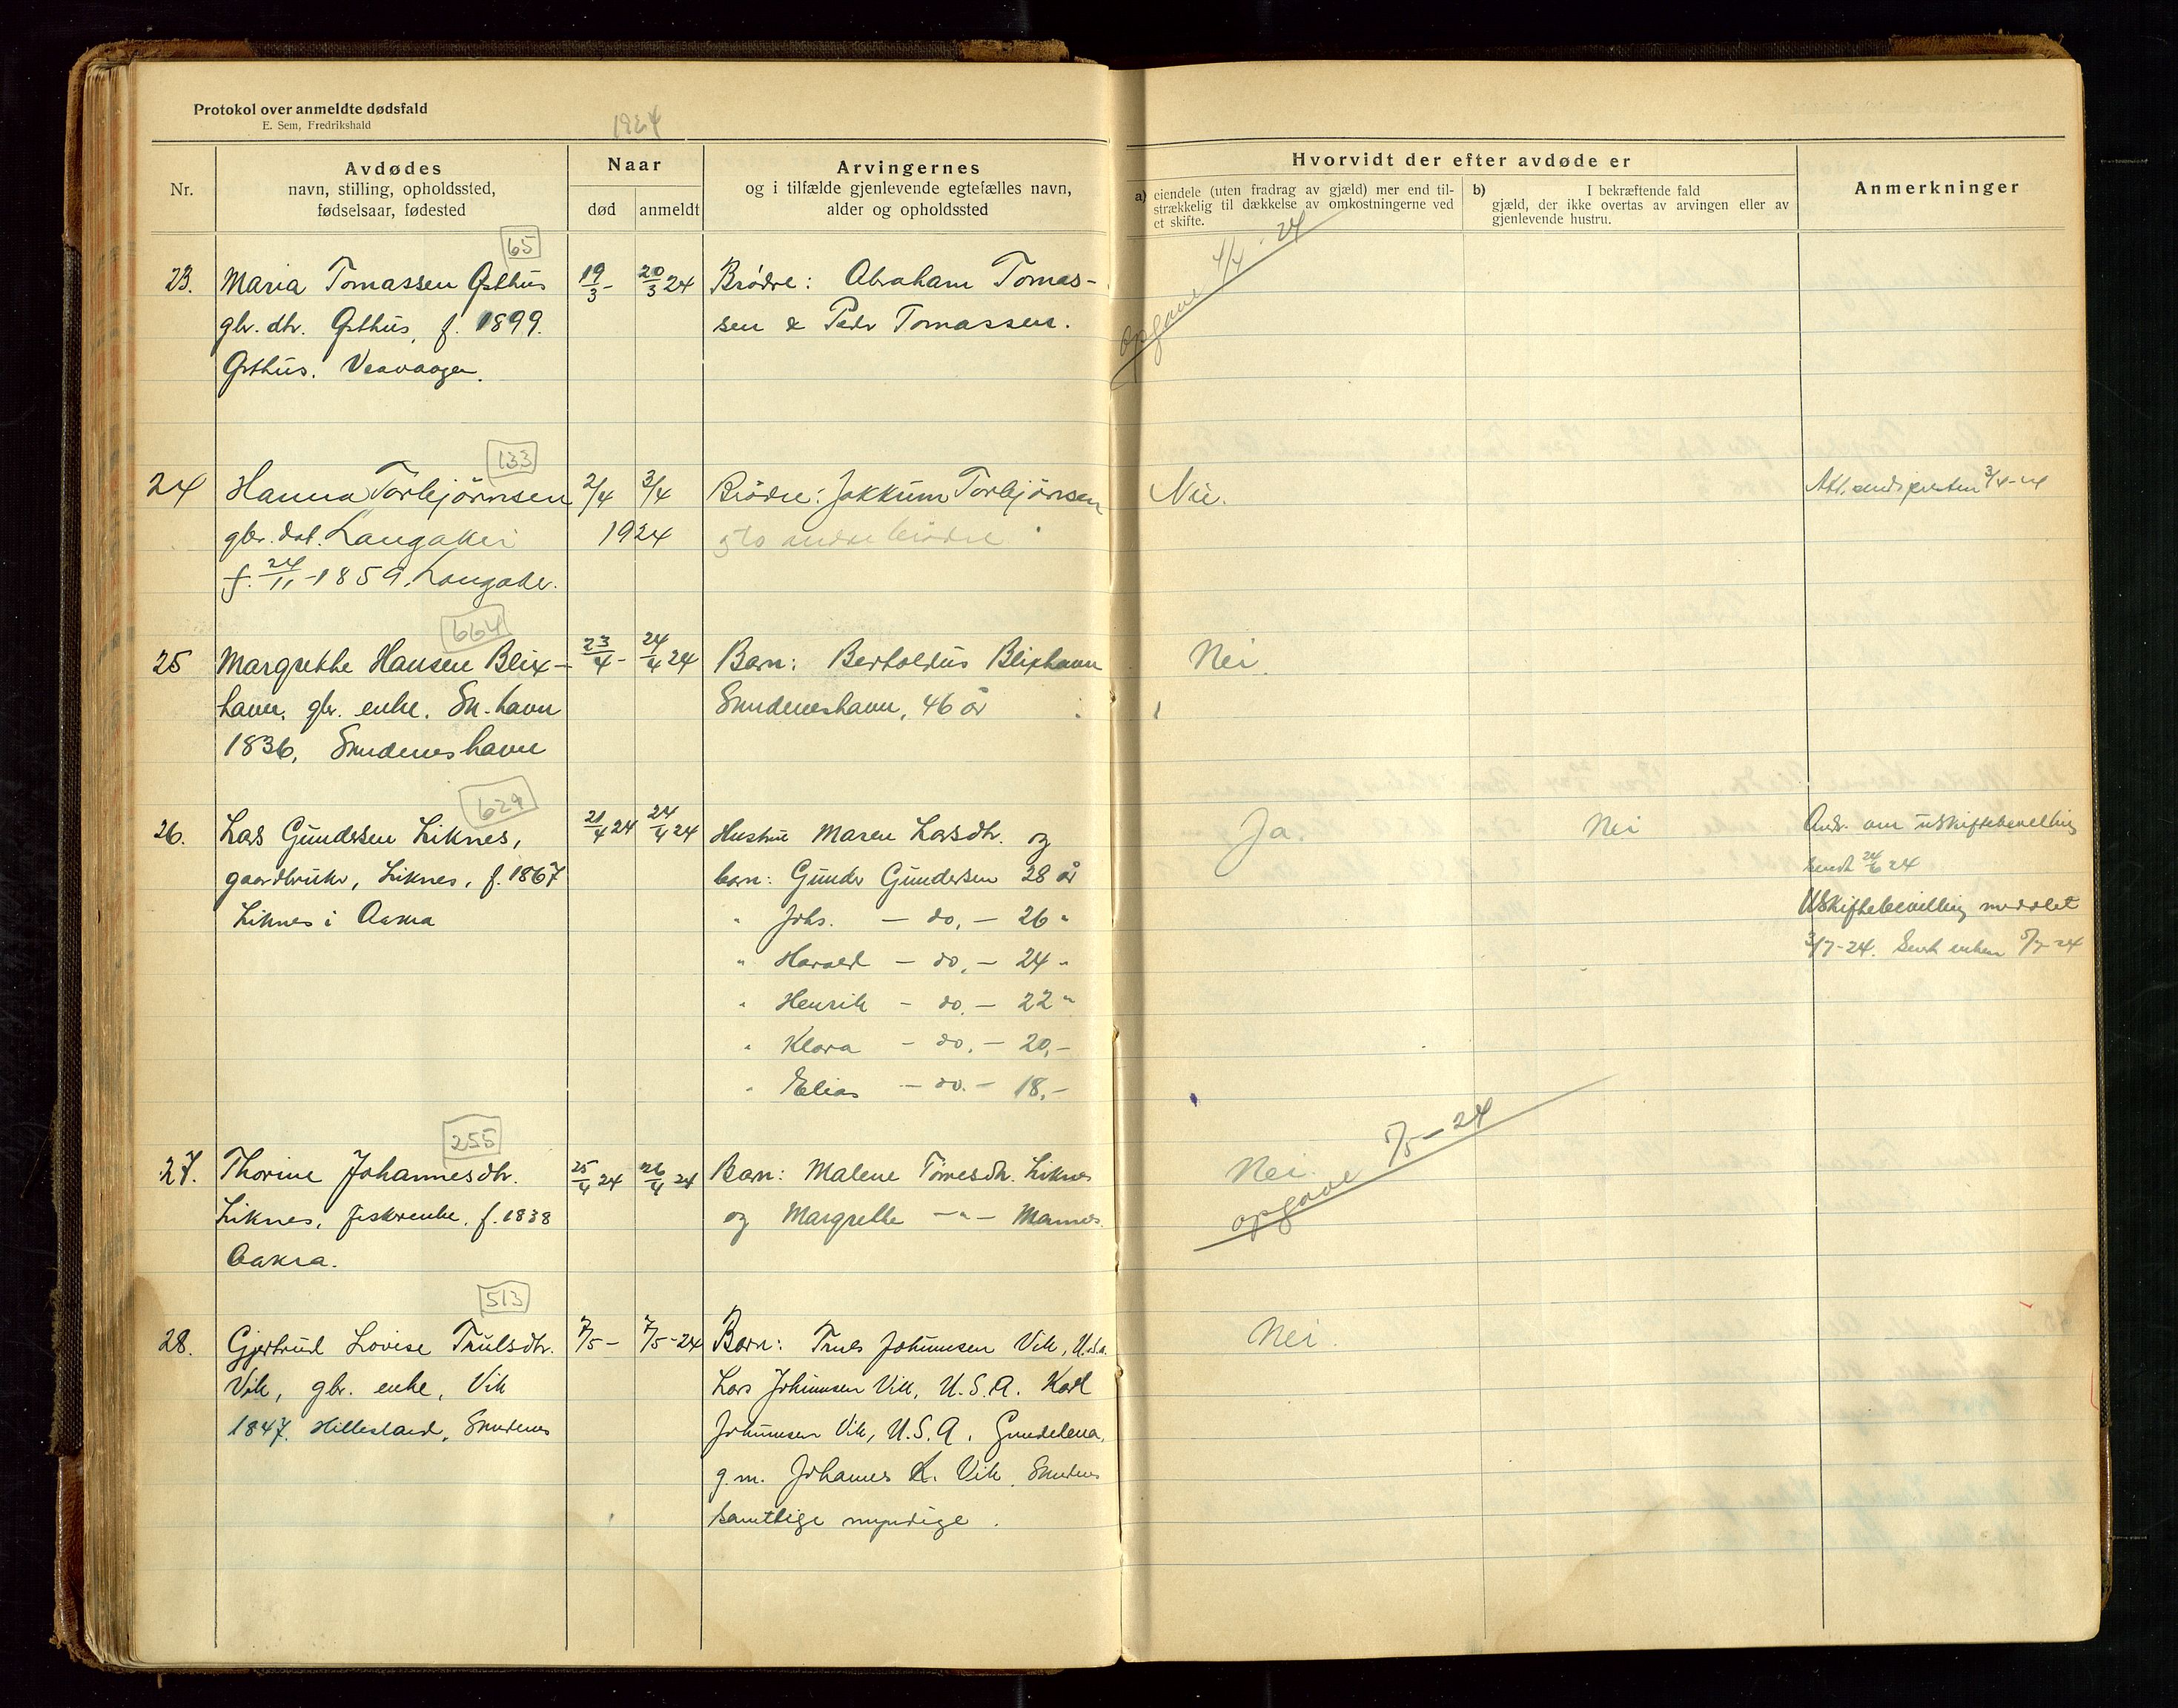 Protokol over anmeldte dødsfald
E. Sem, Fredrikshald
1924
Nr.
Avdødes
navn, stilling, opholdssted,
fødselsaar, fødested
Naar
død
anmeldt
Arvingernes
og i tilfælde gjenlevende egtefælles navn,
alder og opholdssted
Hvorvidt der efter avdøde er
a) eiendele (uten fradrag av gjæld) mer end til-
strækkelig til dækkelse av omkostningerne ved
et skifte.
b) I bekræftende fald
gjæld, der ikke overtas av arvingen eller av
gjenlevende hustru.
Anmerkninger
65
23. Maria Tomassen Østhus 19/3 - 20/3 24 Brödre: Abraham Tomas-
gbr. dtr. Østhus, f. 1899. sen & Peder Tomassen.
Østhus. Veavaagen.
opgave 4/4 - 24
133
24 Hanna Torbjörnsen 2/4 3/4 Brödre: Jakkum Torbjörnsen Nei. 3/4-24
gbr. dat. Langaker 1924 to andre brödre
f. 24/11-1859. Langaker.
664
25 Margrethe Hansen Blix- 23/4 - 24/4 24 Barn: Bertoldus Blixhavn Nei.
havn, gbr. enke. Sk.havn Skudeneshavn, 46 år
1836, Skudeneshavn
629
26. Lars Gundersen Liknes, 21/4 24 24/4 24 Hustru Maren Larsdtr. og Ja. Nei Ands. om uskiftebevilling
gaardbruker, Liknes, f. 1867 barn: Gunder Gundersen 28 år sendt 24/6 24
Liknes i Aakra " Johs. - do. - 26 " Uskiftebevilling meddelt
" Harald - do. - 24 " 3/7-24. Sendt enken 5/7-24
" Henrik - do. - 22 "
" Klara - do. - 20.-
" Elias - do. - 18.-
255
27. Thorine Johannesdtr. 25/4 24 26/4 24 Barn: Malene Tönnesdtr. Liknes Nei.
Liknes, fiskerenke. f. 1838 og Margrethe - " - Mannes.
Aakra.
opgave 5/5 - 24
513
28. Gjertrud Lovise Trulsdtr. 7/5 - 7/5-24 Barn: Truls Johannesen Vik, U.S.A. Nei.
Vik, gbr. enke, Vik Lars Johannesen Vik, U.S.A. Karl
1847. Hillesland, Skudenes Johannesen Vik, U.S.A. Gundelena,
g.m. Johannes K. Vik, Skudenes
samtlige myndige.